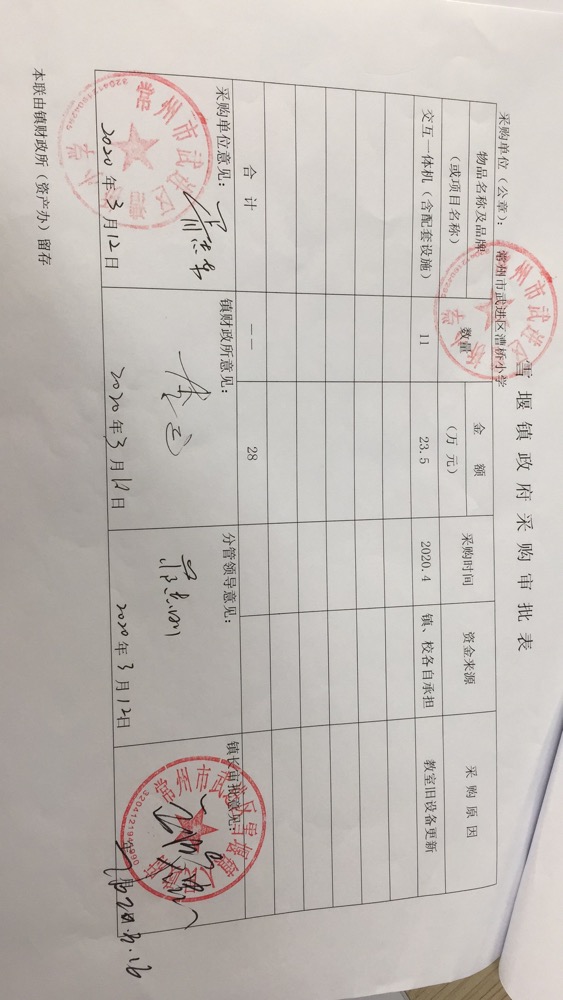 雪堰镇政府采购审批表
采购单位（公章）：常州市武进区漕桥小学
物品名称及品牌（或项目名称） 数量 金额（万元） 采购时间 资金来源 采购原因
交互一体机（含配套设施） 11 23.5 2020.4 镇、校各自承担 教室旧设备更新
合计 —— 28
采购单位意见： 镇财政所意见： 分管领导意见： 镇长审批意见：
2020年3月12日 2020年3月12日 2020年3月12日
本联由镇财政所（资产办）留存